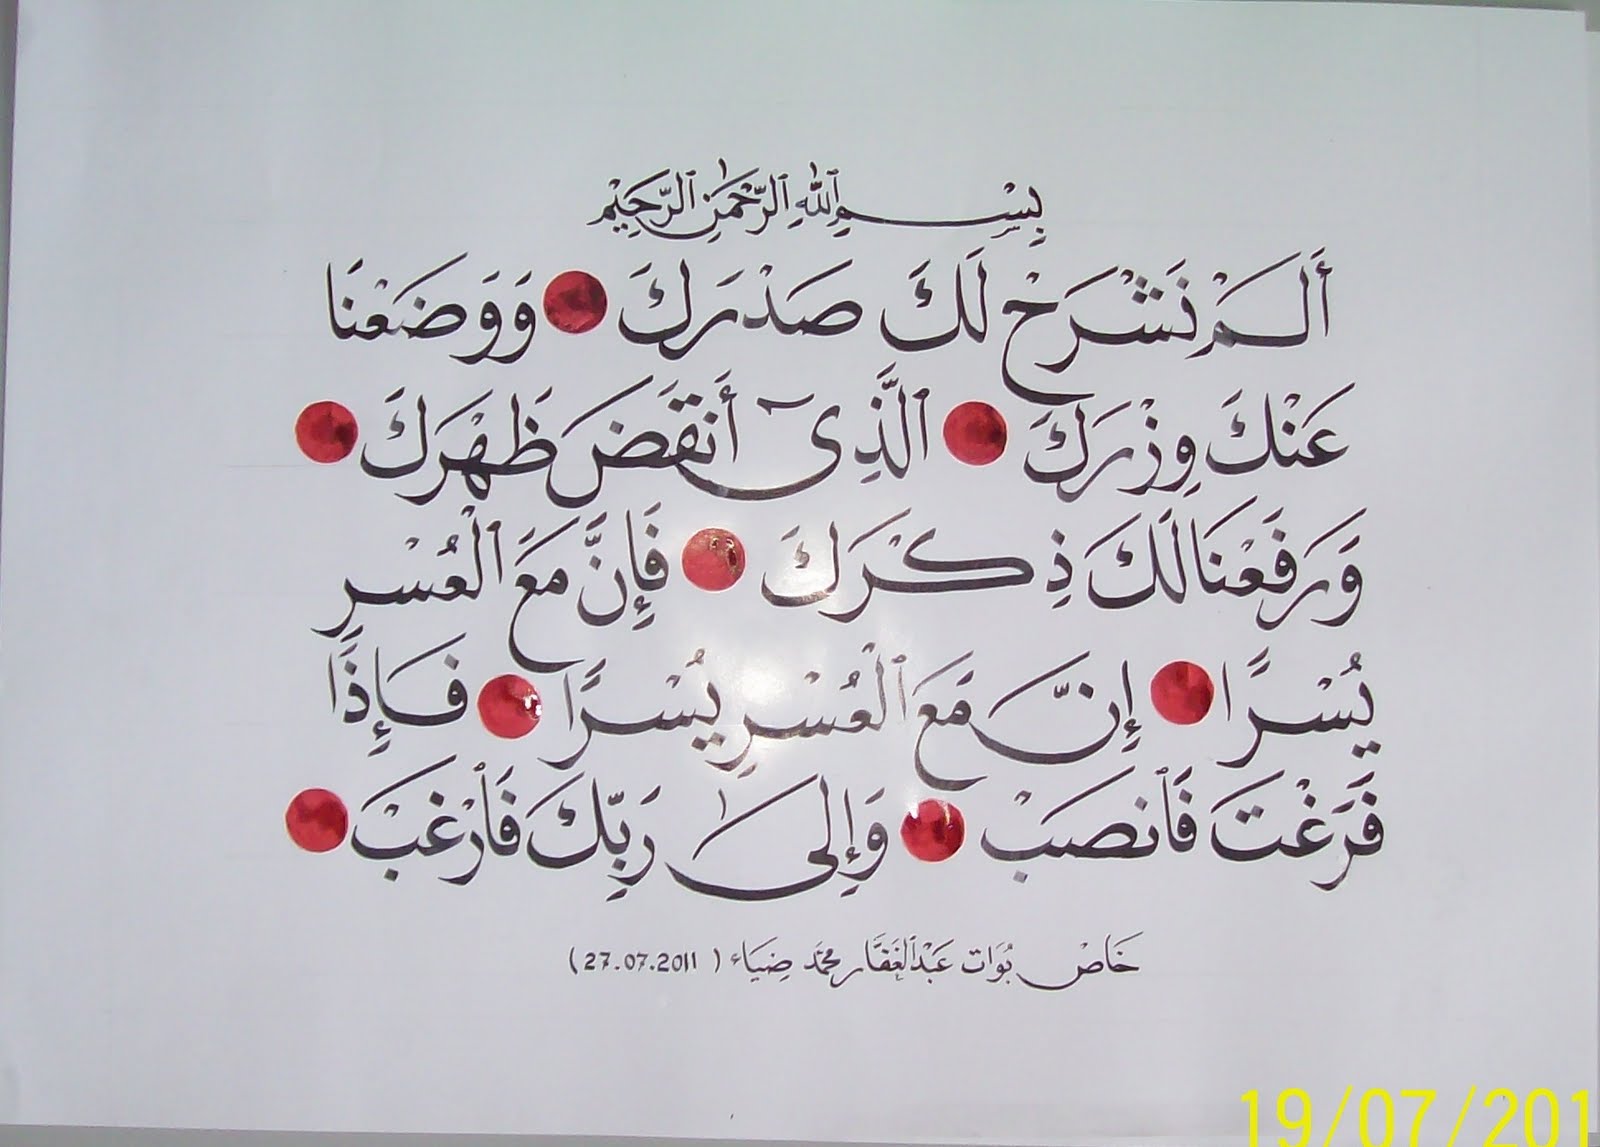 بِسْمِ ٱللَّهِ ٱلرَّحْمَٰنِ ٱلرَّحِيْمِ
أَلَمْ نَشْرَحْ لَكَ صَدْرَكَ وَوَضَعْنَا
عَنْكَ وِزْرَكَ ٱلَّذِىٓ أَنقَضَ ظَهْرَكَ
وَرَفَعْنَا لَكَ ذِكْرَكَ فَإِنَّ مَعَ ٱلْعُسْرِ
يُسْرًا إِنَّ مَعَ ٱلْعُسْرِ يُسْرًا فَإِذَا
فَرَغْتَ فَٱنصَبْ وَإِلَىٰ رَبِّكَ فَٱرْغَبْ
خَاصْ بُوَاتْ عَبْدُ ٱلْغَفَّار مُحَمَّد ضِيَاء (27.07.2011)
19/07/201